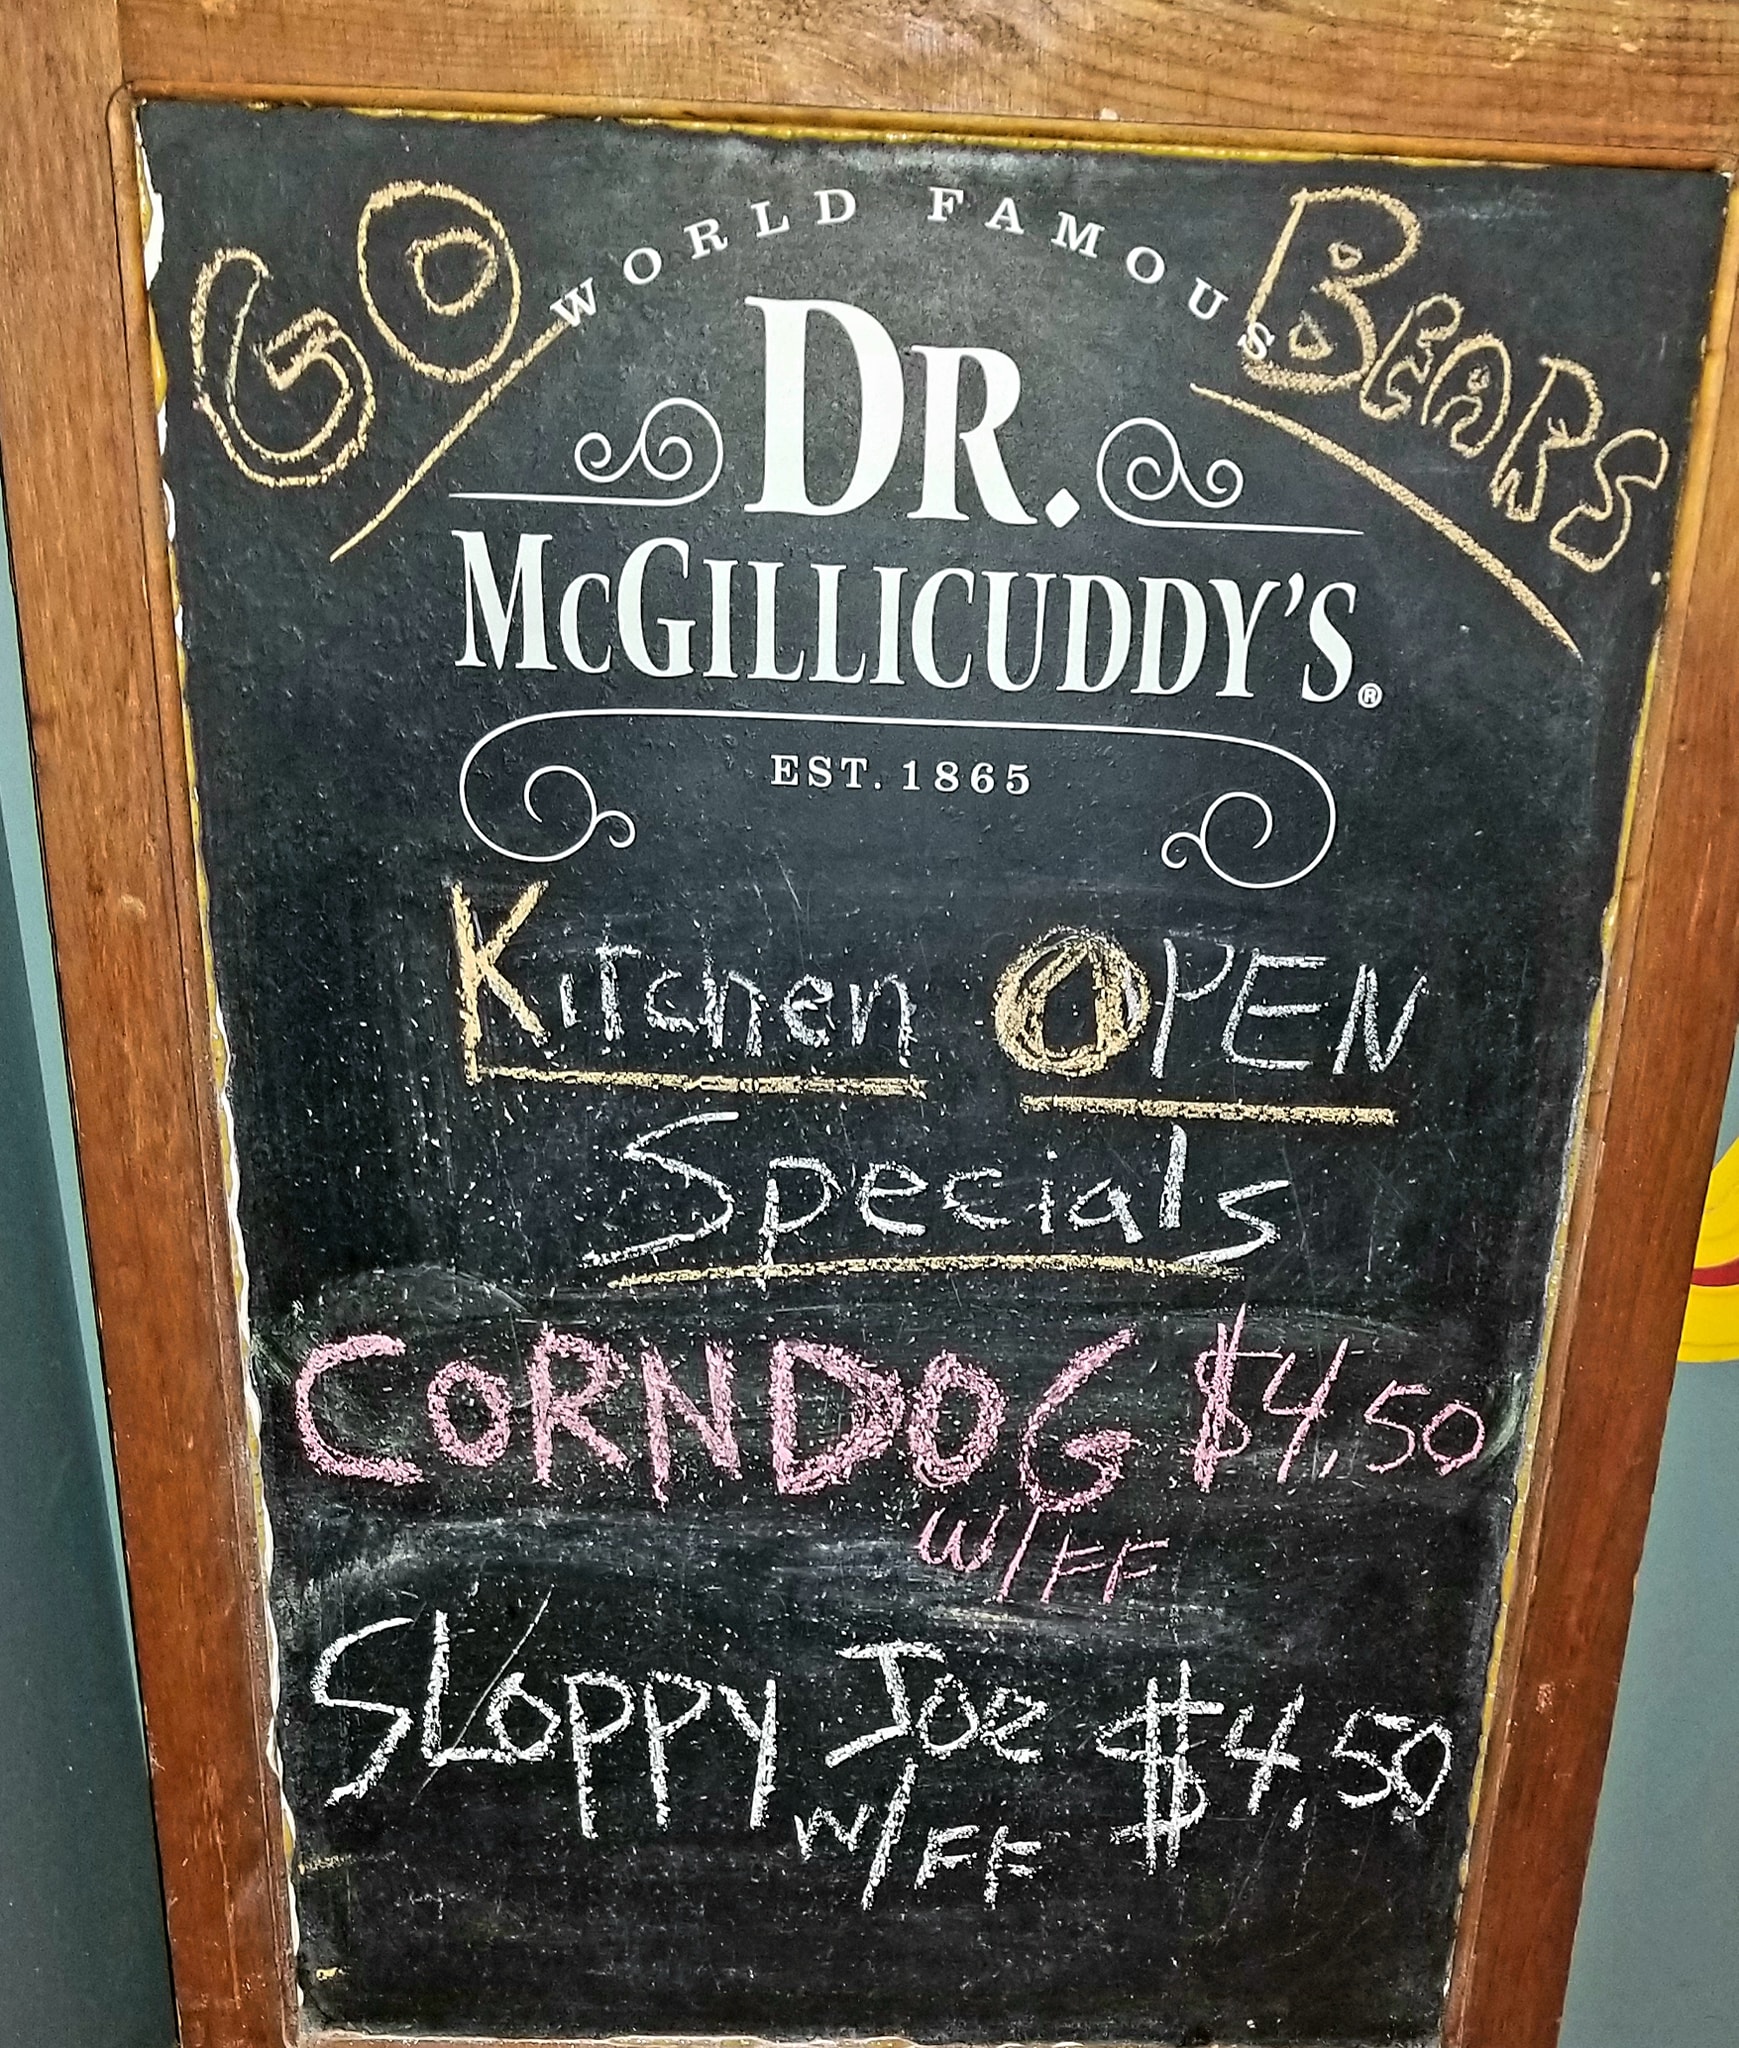 GO
BEARS
WORLD FAMOUS
DR.
MCGILLICUDDY'S®
EST. 1865
Kitchen OPEN
Specials
CORNDOG $4.50
W/FF
SLOPPY JOE $4.50
W/FF